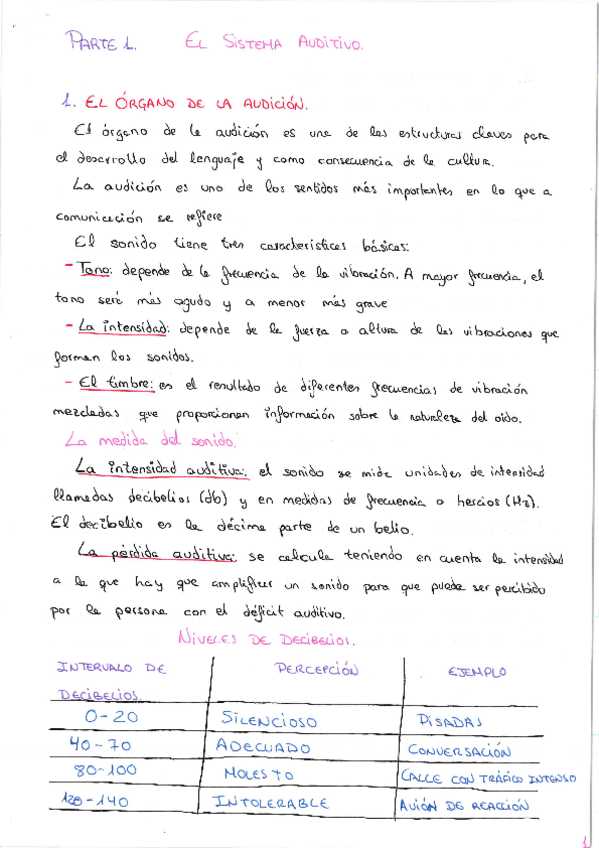 PARTE 1. EL SISTEMA AUDITIVO.
1. EL ÓRGANO DE LA AUDICIÓN.
El órgano de la audición es una de las estructuras claves para
el desarrollo del lenguaje y como consecuencia de la cultura.
La audición es uno de los sentidos más importantes en lo que a
comunicación se refiere
El sonido tiene tres características básicas:
- Tono: depende de la frecuencia de la vibración. A mayor frecuencia, el
tono será más agudo y a menor más grave
- La intensidad: depende de la fuerza o altura de las vibraciones que
forman los sonidos.
- El timbre: es el resultado de diferentes frecuencias de vibración
mezcladas que proporcionan información sobre la naturaleza del oido.
La medida del sonido.
La intensidad auditiva: el sonido se mide unidades de intensidad
llamadas decibelios (db) y en medidas de frecuencia o hercios (Hz).
El decibelio es la décima parte de un belio.
La pérdida auditiva: se calcula teniendo en cuenta la intensidad
a la que hay que amplificar un sonido para que pueda ser percibido
por la persona con el déficit auditivo.
NIVELES DE DECIBELIOS.
INTERVALO DE PERCEPCIÓN EJEMPLO
DECIBELIOS.
0-20 SILENCIOSO PISADAS
40-70 ADECUADO CONVERSACIÓN
80-100 MOLESTO CALLE CON TRÁFICO INTENSO
120-140 INTOLERABLE AVIÓN DE REACCIÓN
1